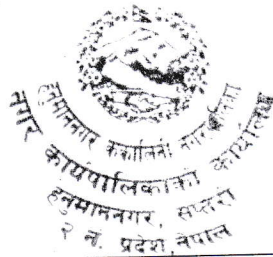 हनुमाननगर कंकालिनी नगरपालिका
नगर कार्यपालिकाको कार्यालय
हनुमाननगर, सप्तरी
२ नं. प्रदेश, नेपाल